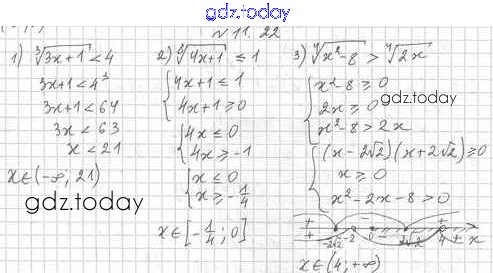 gdz.today
№ 11. 22
1) ∛(3x+1) < 4
3x+1 < 4³
3x+1 < 64
3x < 63
x < 21
x ∈ (-∞; 21)
gdz.today
4x+1 ≤ 1
4x+1 ≥ 0
4x ≤ 0
4x ≥ -1
x ≤ 0
x ≥ -1/4
x ∈ [-1/4; 0]
3) ∜(x²-8) > ∜(2x)
x²-8 ≥ 0
2x ≥ 0
gdz.today
x²-8 > 2x
(x-2√2)(x+2√2) ≥ 0
x ≥ 0
x²-2x-8 > 0
-2√2 -2 0 2√2 4 x
x ∈ (4; +∞)